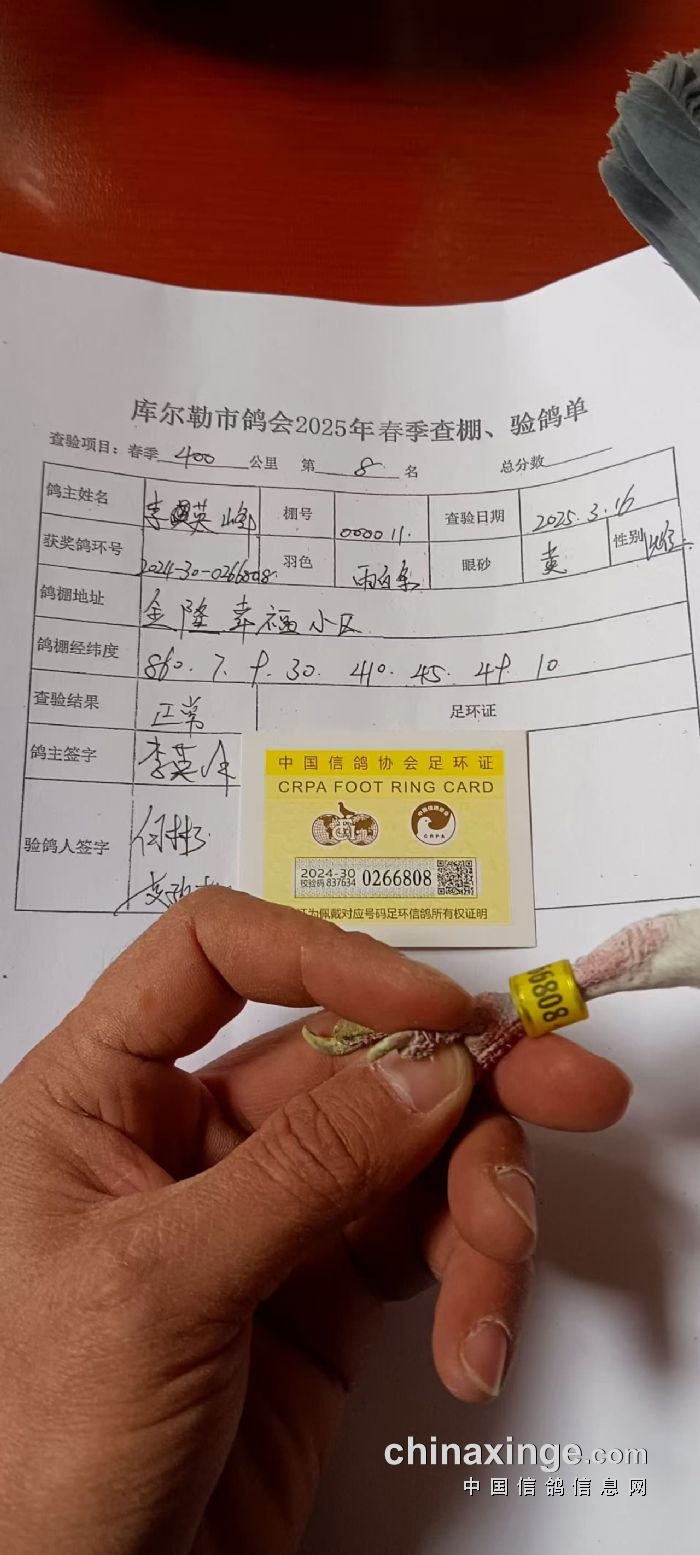 库尔勒市鸽会2025年春季查棚、验鸽单
查验项目：春季 400 公里 第 8 名 总分数
鸽主姓名 李 英 峰 棚号 000011. 查验日期 2025.3.16
获奖鸽环号 2024-30-0266808. 羽色 雨白条 眼砂 黄 性别
鸽棚地址 金隆幸福小区
鸽棚经纬度 860. 7. 9. 30. 410. 45. 49. 10
查验结果 正常 足环证
鸽主签字 李英
验鸽人签字
中国信鸽协会足环证
CRPA FOOT RING CARD
CRPA
2024-30
校验码 837634 0266808
为佩戴对应号码足环信鸽所有权证明
66808
chinaxinge.com
中国信鸽信息网